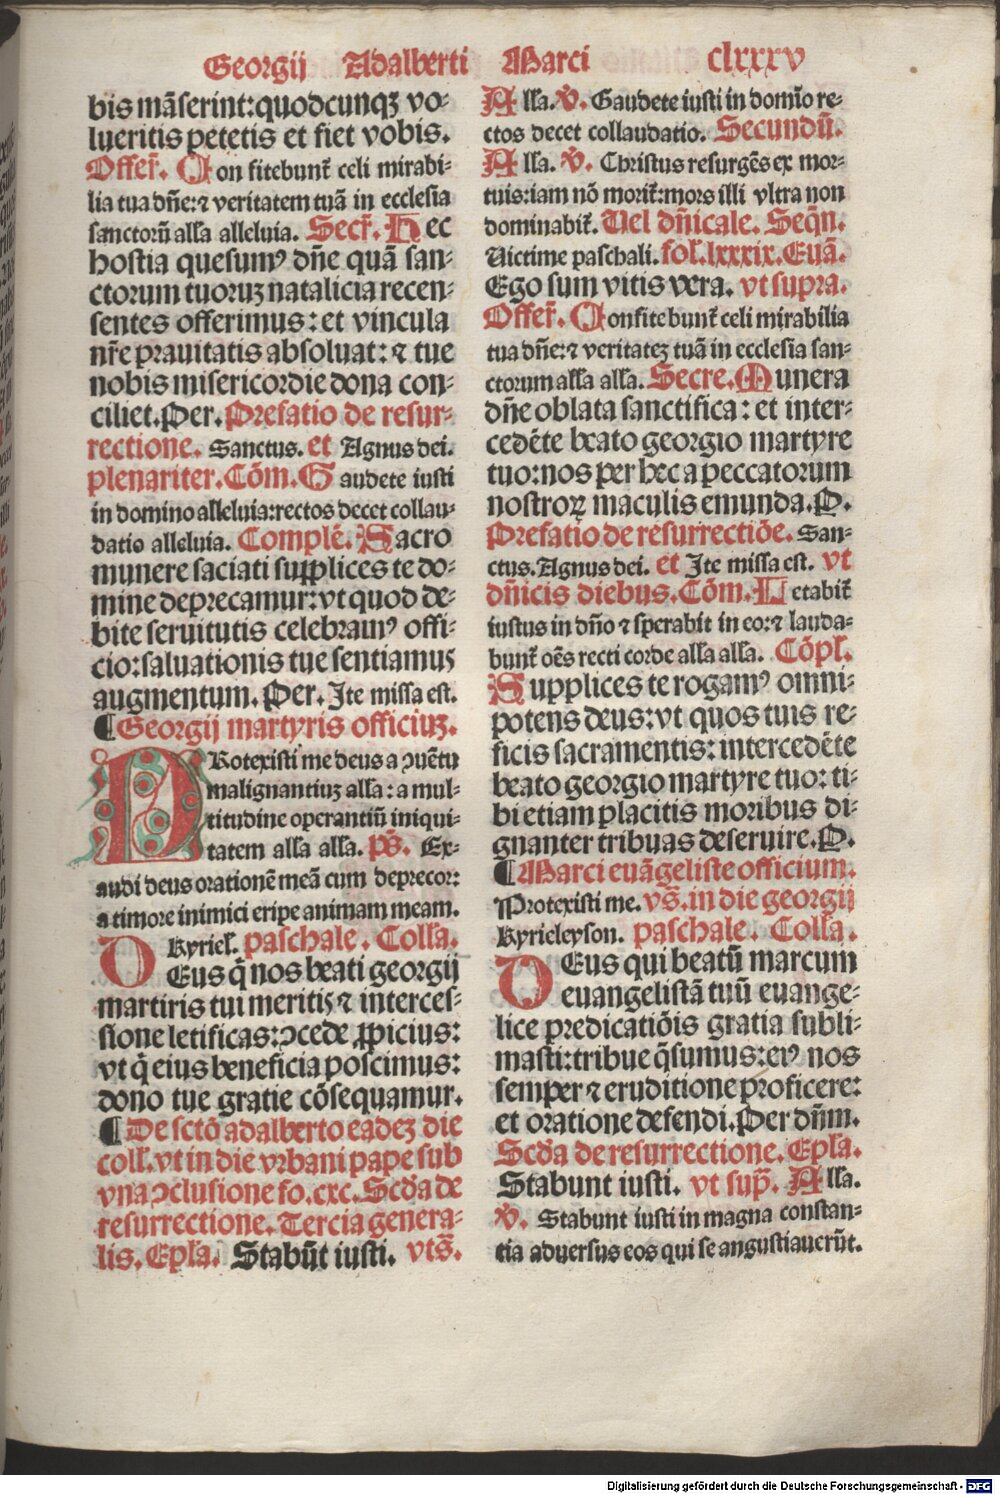 Georgij Adalberti Marci clxxxv
bis mãserint:quodcunqꝫ vo-
lueritis petetis et fiet vobis.
Offeř. Con fitebunt̃ celi mirabi-
lia tua dñe:⁊ veritatem tuã in ecclesia
sanctorũ alľa alleluia. Secř. Hec
hostia quesumꝰ dñe quã san-
ctorum tuoruꝫ natalicia recen-
sentes offerimus:et vincula
nr̃e prauitatis absoluat:⁊ tue
nobis misericordie dona con-
ciliet.Per. Prefatio de resur-
rectione. Sanctus. et Agnus dei.
plenariter.Cõm.Gaudete iusti
in domino alleluia:rectos decet collau-
datio alleluia. Complẽ. Sacro
munere saciati supplices te do-
mine deprecamur:vt quod de-
bite seruitutis celebramꝰ offi-
cio:saluationis tue sentiamus
augmentum. Per. Ite missa est.
¶Georgij martyris officiuꝫ.
PRotexisti me deus a ꝯuẽtu
malignantiuꝫ alľa: a mul-
titudine operantiũ iniqui-
tatem alľa alľa. pš. Ex-
audi deus orationẽ meã cum deprecor:
a timore inimici eripe animam meam.
Kyrieľ. paschale. Colľa.
DEus q̃ nos beati georgij
martiris tui meritis ⁊ interces-
sione letificas:ꝯcede ꝓpicius:
vt q̃ eius beneficia poscimus:
dono tue gratie cõsequamur.
¶De sctõ adalberto eadeꝫ die
colľ.vt in die vrbani pape sub
vna ꝯclusione fo.cxc. Scďa de
resurrectione. Tercia genera-
lis. Epľa. Stabũt iusti. vtš.
Alľa. ℣. Gaudete iusti in domĩo re-
ctos decet collaudatio. Secundũ.
Alľa. ℣. Christus resurgẽs ex mor-
tuis:iam nõ morit̃:mors illi vltra non
dominabit̃. Uel dñicale. Seq̃n.
Uictime paschali. foľ.lxxxix.Euã.
Ego sum vitis vera. vt supra.
Offeř. Confitebunt̃ celi mirabilia
tua dñe:⁊ veritateꝫ tuã in ecclesia san-
ctorum alľa alľa. Secre. Munera
dñe oblata sanctifica: et inter-
cedẽte beato georgio martyre
tuo:nos per hec a peccatorum
nostroꝝ maculis emunda.P.
Prefatio de resurrectiõe. San-
ctus. Agnus dei. et Ite missa est. vt
dñicis diebus. Cõm. Letabit̃
iustus in dño ⁊ sperabit in eo:⁊ lauda-
bunt̃ oẽs recti corde alľa alľa. Cõpľ.
Supplices te rogamꝰ omni-
potens deus:vt quos tuis re-
ficis sacramentis: intercedẽte
beato georgio martyre tuo: ti-
bi etiam placitis moribus di-
gnanter tribuas deseruire.P.
¶Marci euãgeliste officium.
Protexisti me. vš.in die georgij
Kyrieleyson. paschale. Colľa.
DEus qui beatũ marcum
euangelistã tuũ euange-
lice predicatiõis gratia subli-
masti:tribue q̃sumus:eiꝰ nos
semper ⁊ eruditione proficere:
et oratione defendi.Per dñm.
Scďa de resurrectione. Epľa.
Stabunt iusti. vt sup̃. Alľa.
℣. Stabunt iusti in magna constan-
tia aduersus eos qui se angustiauerũt.
Digitalisierung gefördert durch die Deutsche Forschungsgemeinschaft - DFG